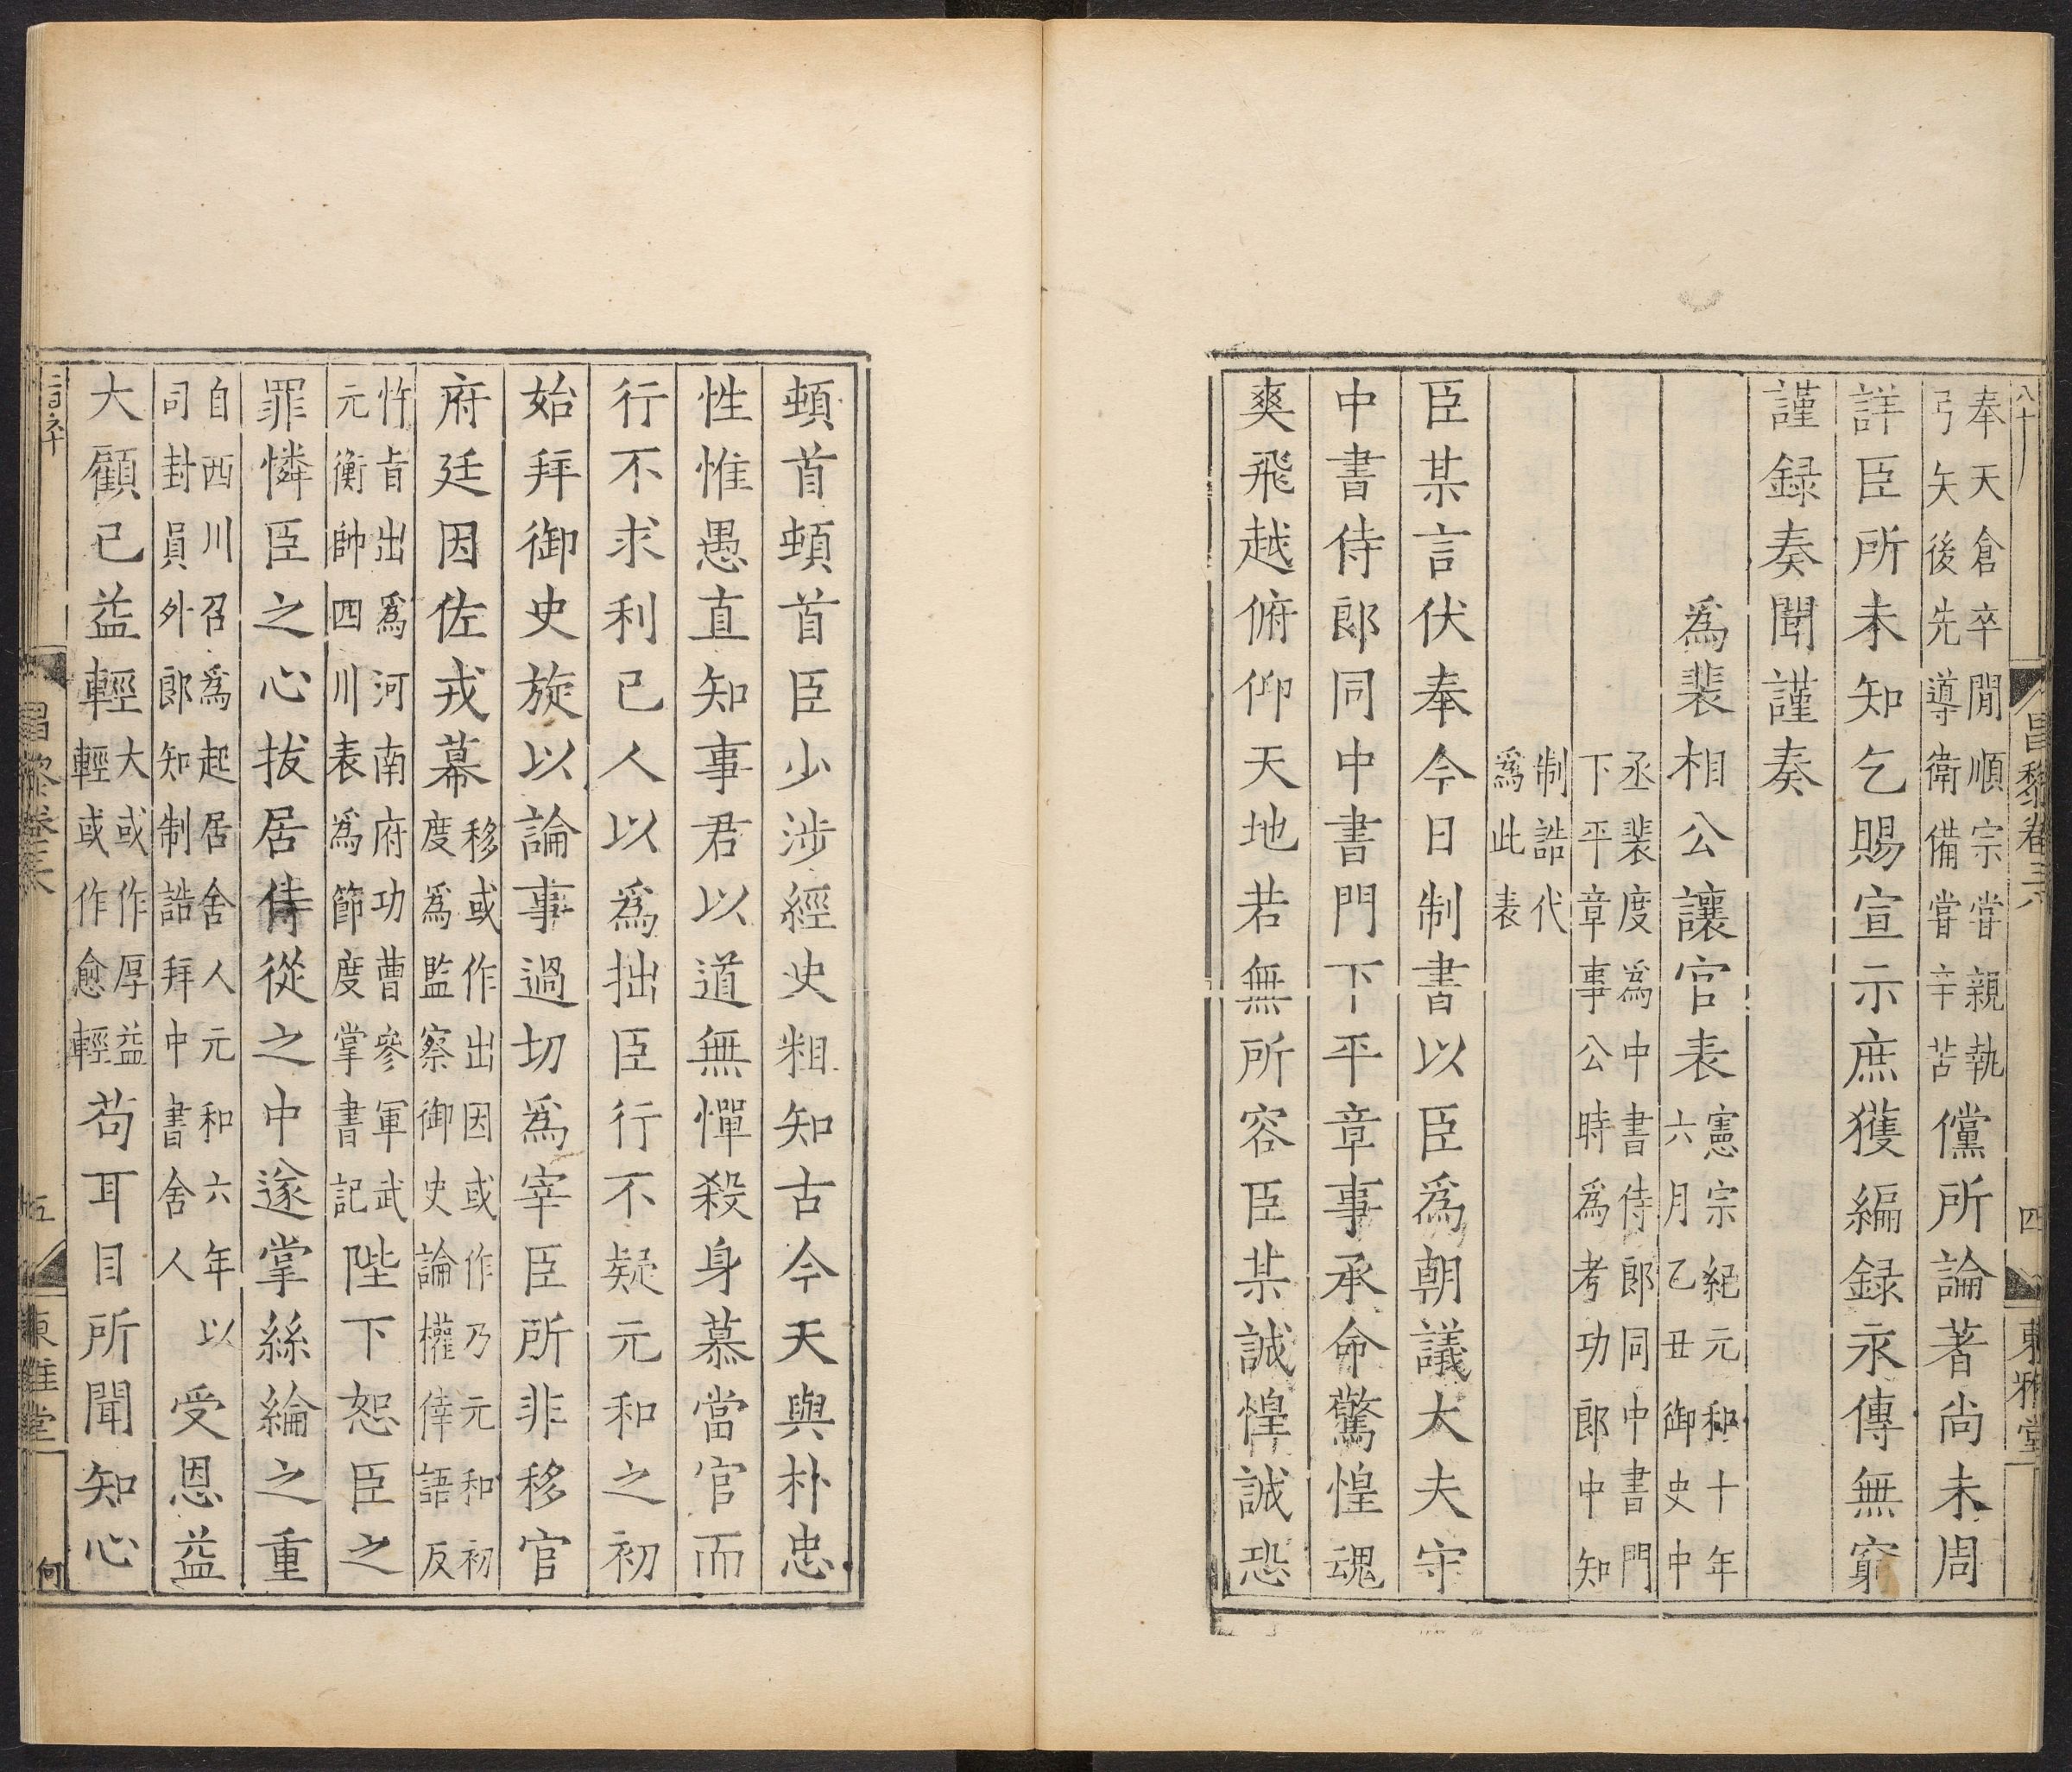 昌黎卷三 四 東雅堂
奉天倉卒閒順宗嘗親執弓矢後先導衛備嘗辛苦儻所論著尚未周
詳臣所未知乞賜宣示庶獲編録永傳無窮
謹録奏聞謹奏
爲裴相公讓官表憲宗紀元和十年六月乙丑御史中
丞裴度爲中書侍郎同中書門下平章事公時爲考功郎中知
制誥代爲此表
臣某言伏奉今日制書以臣爲朝議大夫守
中書侍郎同中書門下平章事承命驚惶魂
爽飛越俯仰天地若無所容臣某誠惶誠恐
頓首頓首臣少涉經史粗知古今天與朴忠
性惟愚直知事君以道無憚殺身慕當官而
行不求利已人以爲拙臣行不疑元和之初
始拜御史旋以論事過切爲宰臣所非移官
府廷因佐戎幕移或作出因或作乃元和初度爲監察御史論權倖語反
忤㫖出爲河南府功曹參軍武元衡帥四川表爲節度掌書記陛下恕臣之
罪憐臣之心拔居侍從之中遂掌絲綸之重
自西川召爲起居舍人元和六年以司封員外郎知制誥拜中書舍人受恩益
大顧已益輕大或作厚益輕或作愈輕苟耳目所聞知心
昌黎卷三 五 東雅堂 何